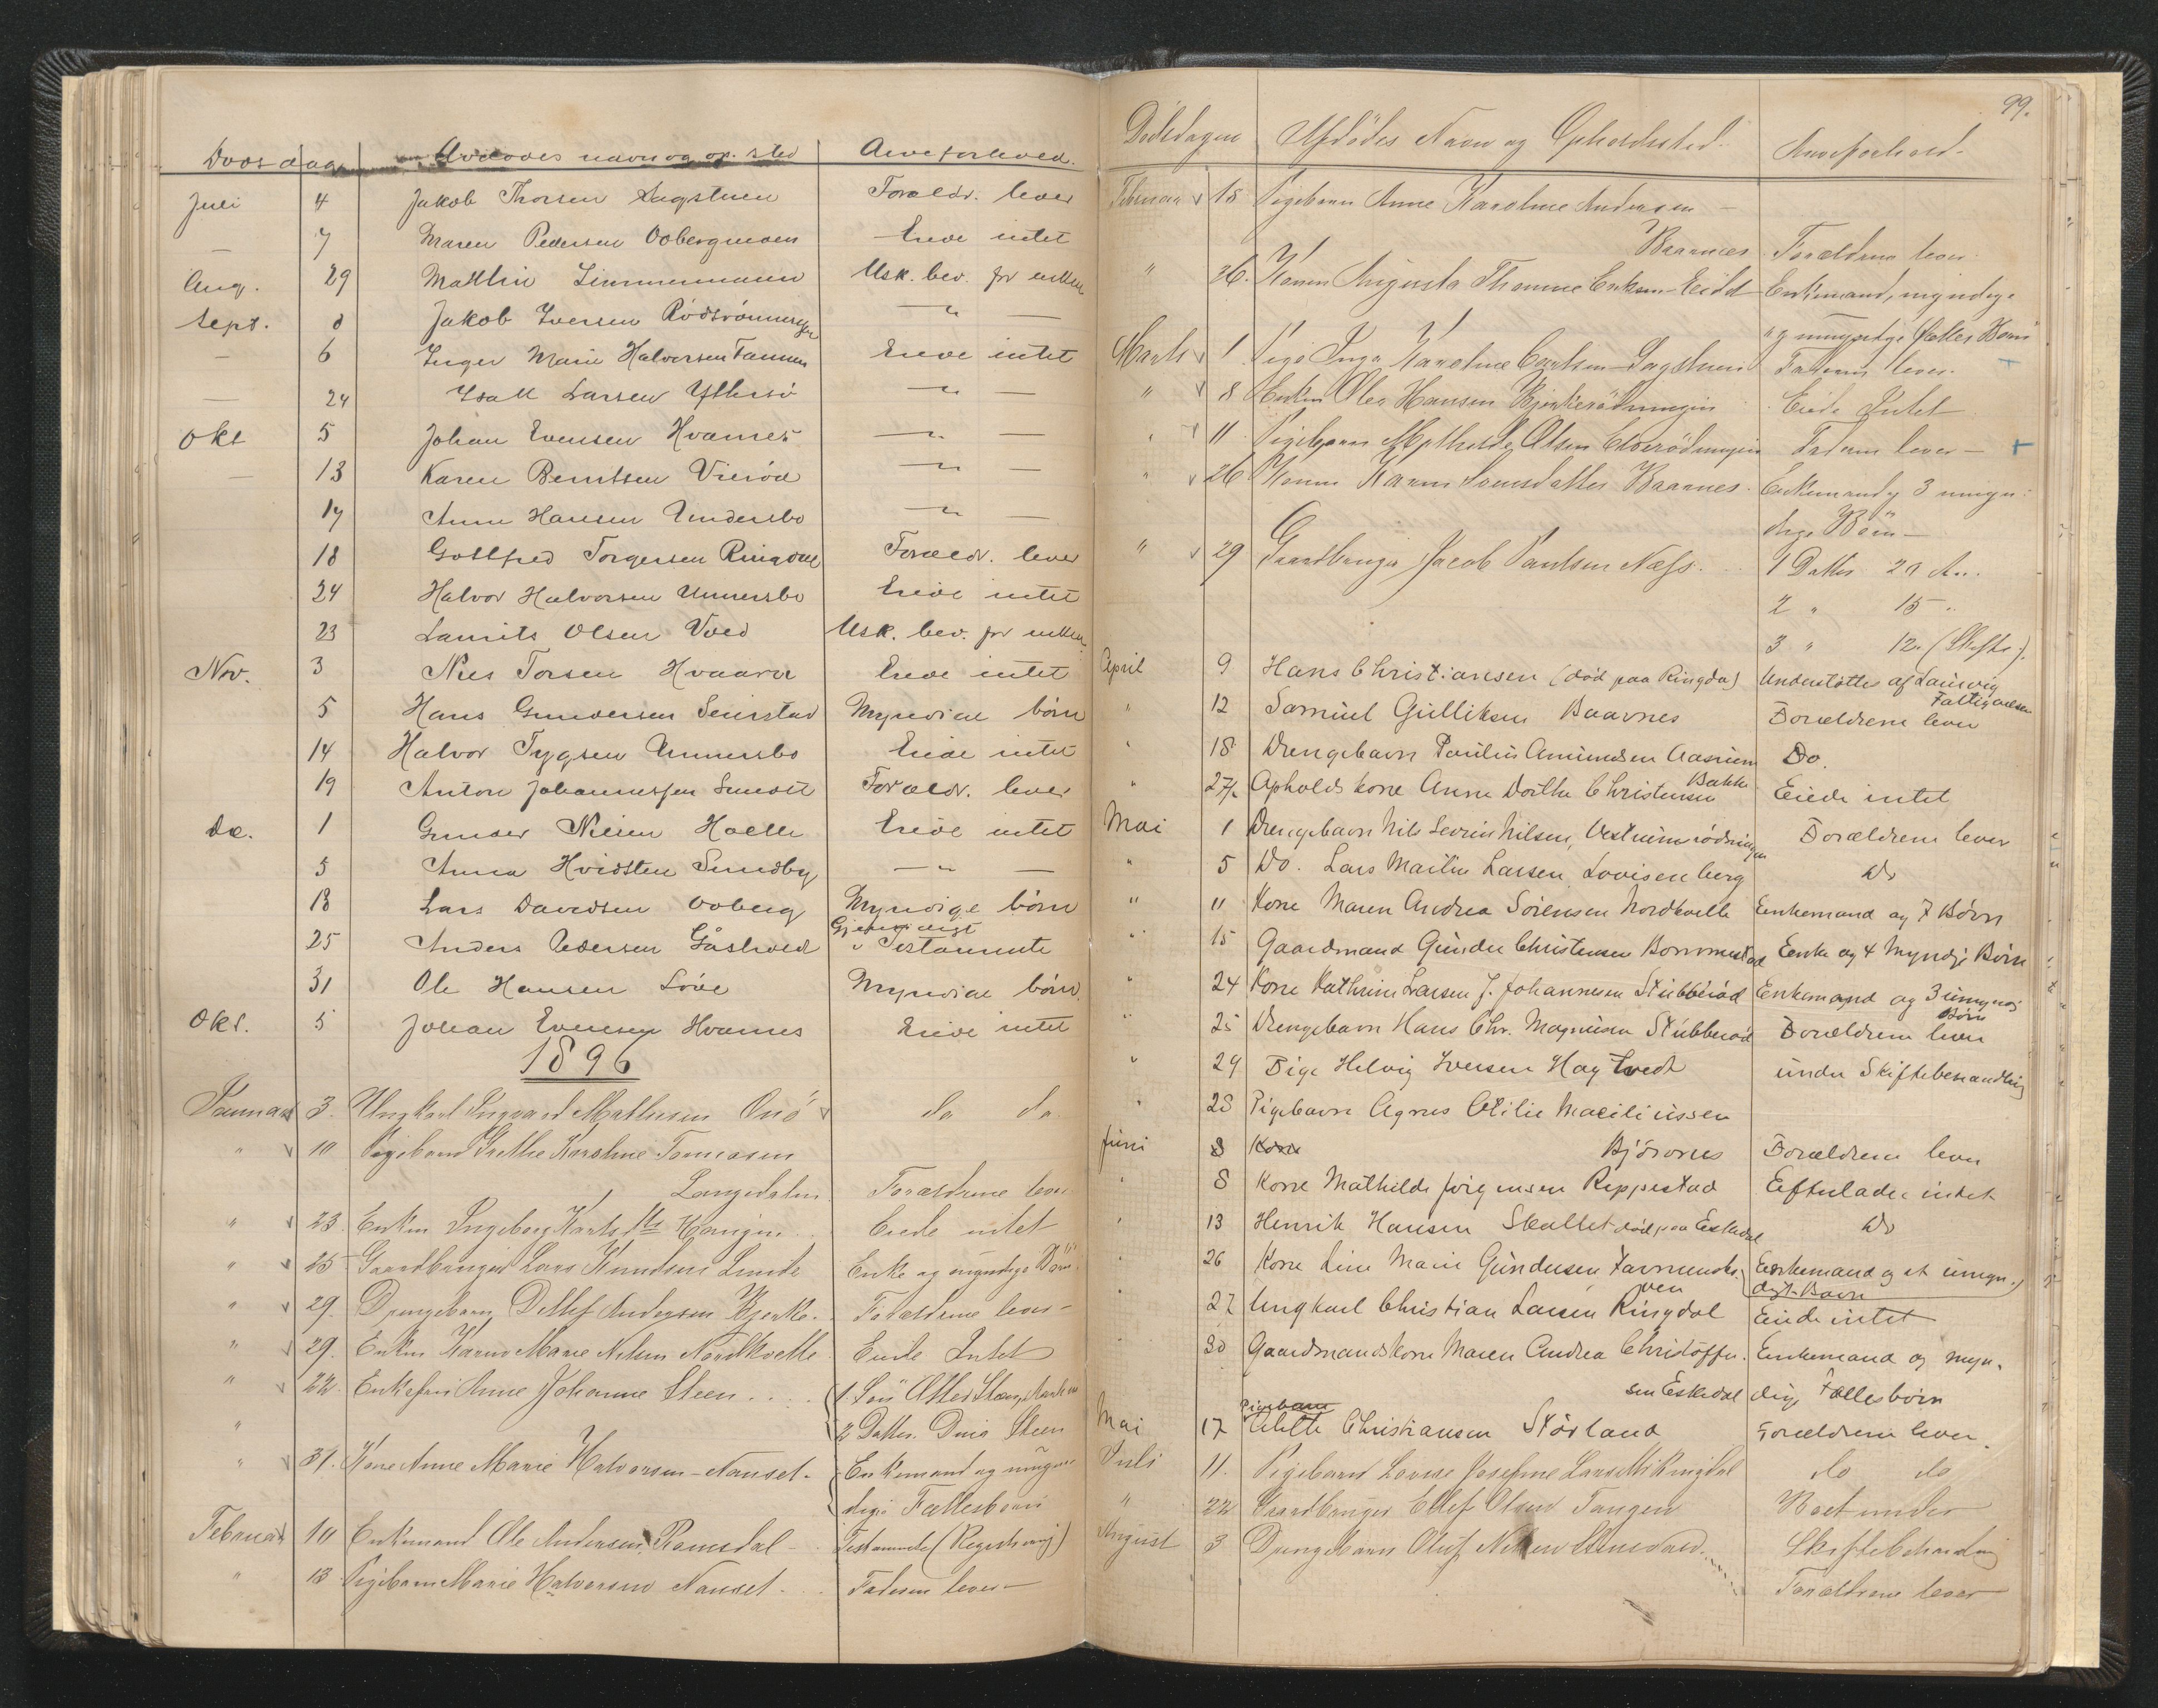 Dødsdag Afdødes navn og op. sted Arveforhold.
Juli 4 Jakob Thorsen Sagstuen Foreldr. lever
— 7 Maren Pedersen Oobergmoen Eiede intet
Aug. 29 Mathlin Simmermann Usk. bev. for enken
Sept. 8 Jakob Iversen Rødsrønningen — " —
— 6 Inger Marie Halvorsen Eiede intet
— 24 Isak Larsen — " —
Okt 5 Johan Evensen Hvarnes — " —
— 13 Karen Berntsen Vierød — " —
17 Anne Hansen Undersbo — " —
18 Gottfred Torgersen Ringdal Foreldr. lever
24 Halvor Halvorsen Unnersbo Eiede intet
23 Laurits Olsen Usk. bev. for enken
Nov. 3 Nils Torsen Hvaara Eiede intet
5 Hans Gundersen Myndige børn
14 Halvor Unnersbo Eiede intet
19 Anton Johannessen Foreldr. lever
De. 1 Gunder Nilsen Eiede intet
5 Anna Hvidsten Sundby — " —
13 Lars Davidsen Ooberg Myndige børn
25 Anders Pedersen Gjensidigt
Testamente
31 Ole Hansen Løve Myndige børn
Okt. 5 Johan Evensen Hvarnes Eiede intet
1896
Januar 3. Ungkarl Ingvard Mathisen Onø do do.
" 10 Pigebarn Grethe Karoline
Langedalen Forældrene lever
" 23. Enken Ingeborg Eiede intet
" 25 Gaardbruger Lars Knudsen Lunde Enke og myndige Børn
" 29. Drengebarn Detlef Andersen Bjerke. Forældrene lever —
" 29. Enken Karen Marie Nilsen Nordkvelle Eiede Intet
" 22. Enkefru Anne Johanne Steen . . . 1. Søn Steen,
" 2 Datter. Steen
" 31. Kone Anne Marie Halvorsen – Nanset. Enkemand og umyn
dige Fællesbørn
Februar 10 Enkemand Ole Andersen Ramsdal – Testamente (Registrering)
" 13 Pigebarn Marie Halvorsen Nanset. Faderen lever —
99.
Dødsdagen Afdødes Navn og Opholdssted. Arveforhold.
Februar 18 Pigebarn Anne Karoline Andersen —
Baarnes Forældrene lever.
" 26. Konen Augusta Enkemand, myndige
og umyndige Fælles Børn
Marts 1 Pige Inga Karoline Carlsen – Sagstuen Faderen lever.
" 8 Enken Hansen Eiede Intet
" 11 Pigebarn Mathilde Olsen Faderen lever —
" 26 Konen Karen Baarnes. Enkemand og 3 umyn-
dige Børn —
" 29 Gaardbruger Jacob Paulsen Næss. 1 Datter 20 A..
2 " 15 "
3 " 12 " (Skifte).
April 9 Hans Christiansen (død paa Ringdal) Understøttes af Laurvig
Fattigvæsen
" 12 Samuel Gulliksen Baarnes Forældrene lever
" 18 Drengebarn Paulus Amundsen Aasrum Do.
" 27/4 Opholdskone Anne Dorthe Christensen Bakke Eiede intet
Mai 1 Drengebarn Nils Severin Nilsen, Vestrumrødningen Forældrene lever
" 5 Do. Lars Martin Larsen Lovisenberg Do
" 11 Kone Maren Andrea Sørensen Nordkvelle Enkemand og 7 Børn
" 15 Gaardmand Gunder Christensen Bommestad Enke og 4 Myndige Børn
" 24 Kone Kathrine Larsen f. Johannesen Stubberød Enkemand og 3 umynd.
Børn
" 25 Drengebarn Hans Chr. Magnusen Stubberød Forældrene lever
" 29 Pige Helvig Iversen Hagtvedt under Skiftebehandling
" 28 Pigebarn Agnes Otilie
Juni 8 Kone Bjørsnes Forældrene lever
" 8 Kone Mathilde Jørgensen Reppestad Efterlader intet
" 13 Henrik Hansen død paa Eskedal Do
" 26 Kone Line Marie Gundersen Enkemand og et umyn.
digt Barn
" 27 Ungkarl Christian Larsen Ringdal Eiede intet
" 30 Gaardmandskone Maren Andrea Christoffer. Enkemand og myn.
sen Eskedal dig Fællesbørn
Pigebarn
Mai 17 Alette Christiansen Størland Forældrene lever.
Juli 11. Pigebarn Lovise Josefine Ringdal do do
" 22 Gaardbruger Ellef Olsen Tangen Boet under
August 3 Drengebarn Oluf Nilsen Skiftebehandling
Forældrene lever